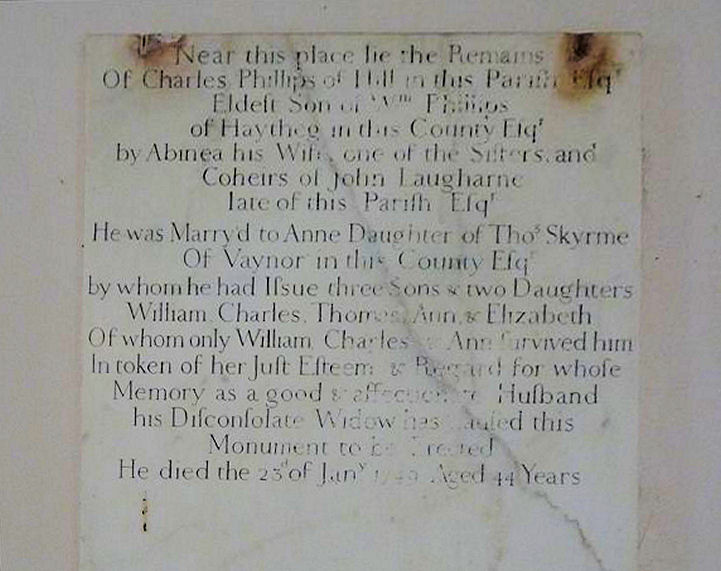 Near this place lie the Remains
Of Charles Phillips of Hill in this Pariſh Eſqʳ
Eldeſt Son of Wᵐ Phillips
of Haytheg in this County Eſqʳ
by Abinea his Wife, one of the Siſters, and
Coheirs of John Laugharne
late of this Pariſh Eſqʳ
He was Marry'd to Anne Daughter of Thoˢ Skyrme
Of Vaynor in this County Eſqʳ
by whom he had Iſsue three Sons & two Daughters
William, Charles, Thomas, Ann, & Elizabeth
Of whom only William, Charles & Ann ſurvived him
In token of her Juſt Eſteem & Regard for whoſe
Memory as a good & affectionate Huſband
his Diſconſolate Widow has cauſed this
Monument to be Erected
He died the 23ᵈ of Janʸ Aged 44 Years